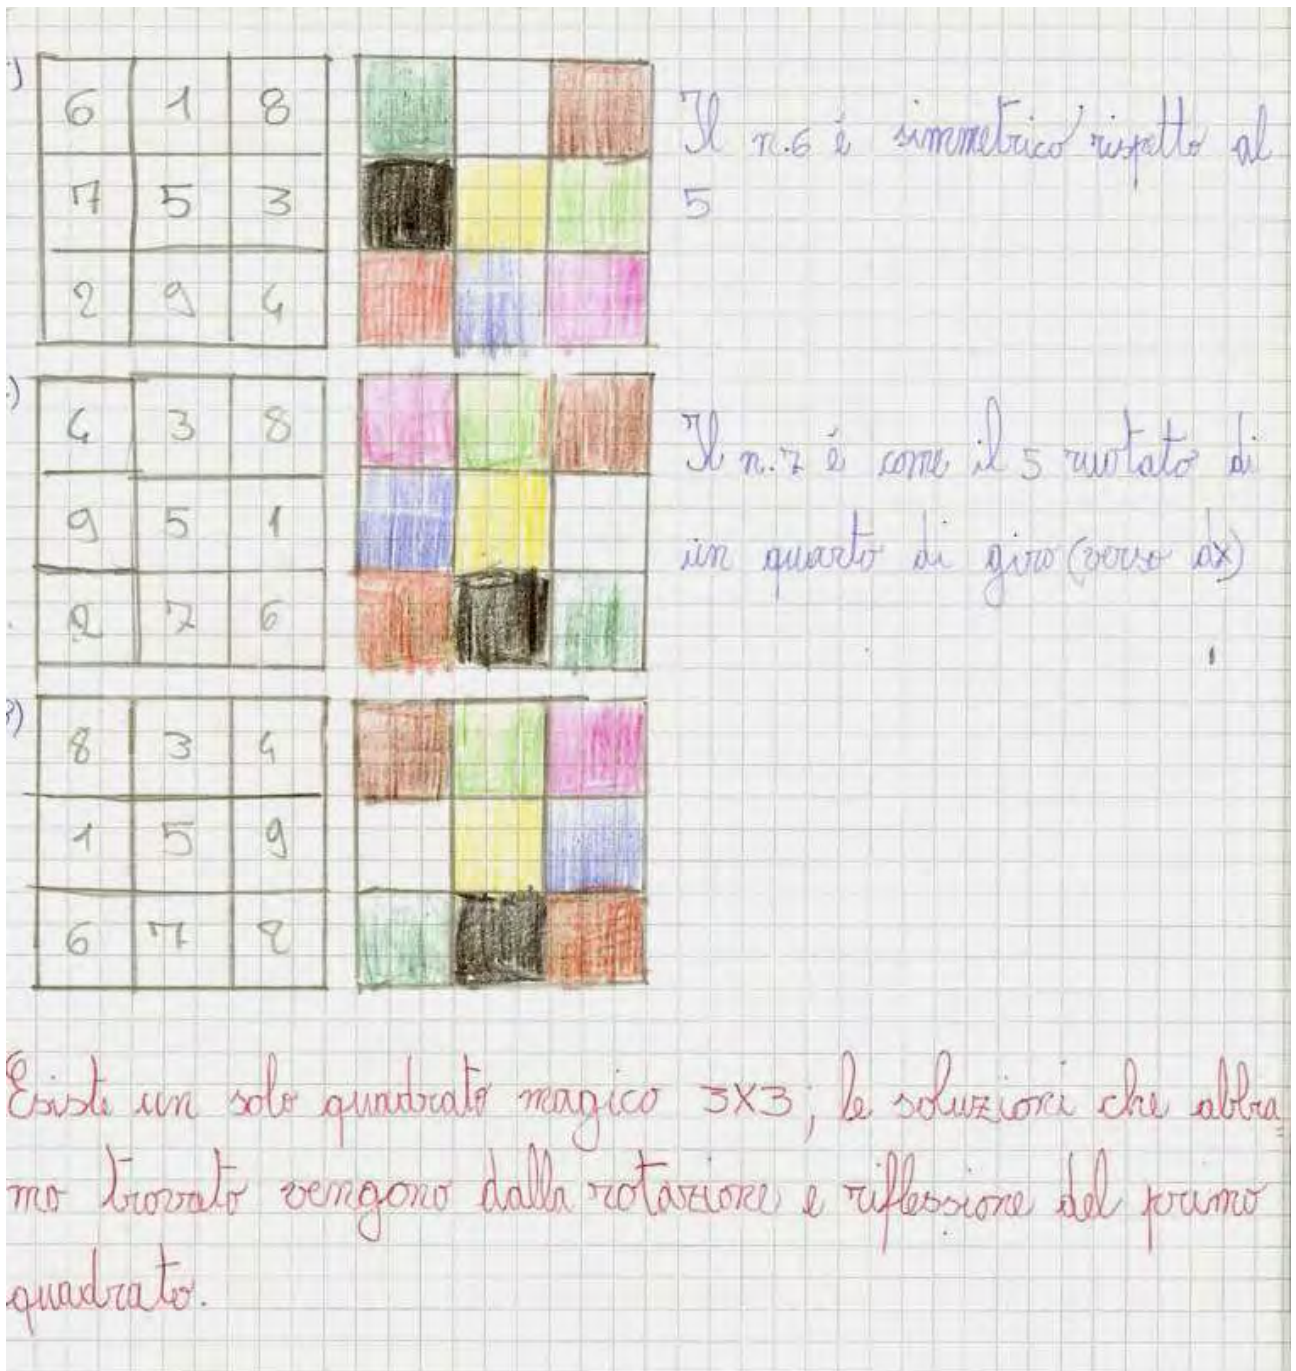 )
6 1 8
7 5 3
2 9 4
Il n.6 è simmetrico rispetto al
5
)
4 3 8
9 5 1
2 7 6
Il n.7 è come il 5 ruotato di
un quarto di giro (verso dx)
)
8 3 4
1 5 9
6 7 2
Esiste un solo quadrato magico 3X3; le soluzioni che abbia
mo trovato vengono dalla rotazione e riflessione del primo
quadrato.